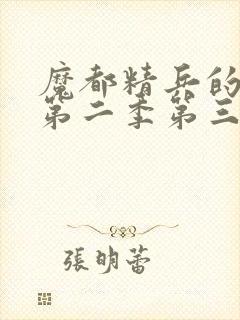 魔都精兵的
第二季第三
張明蕾